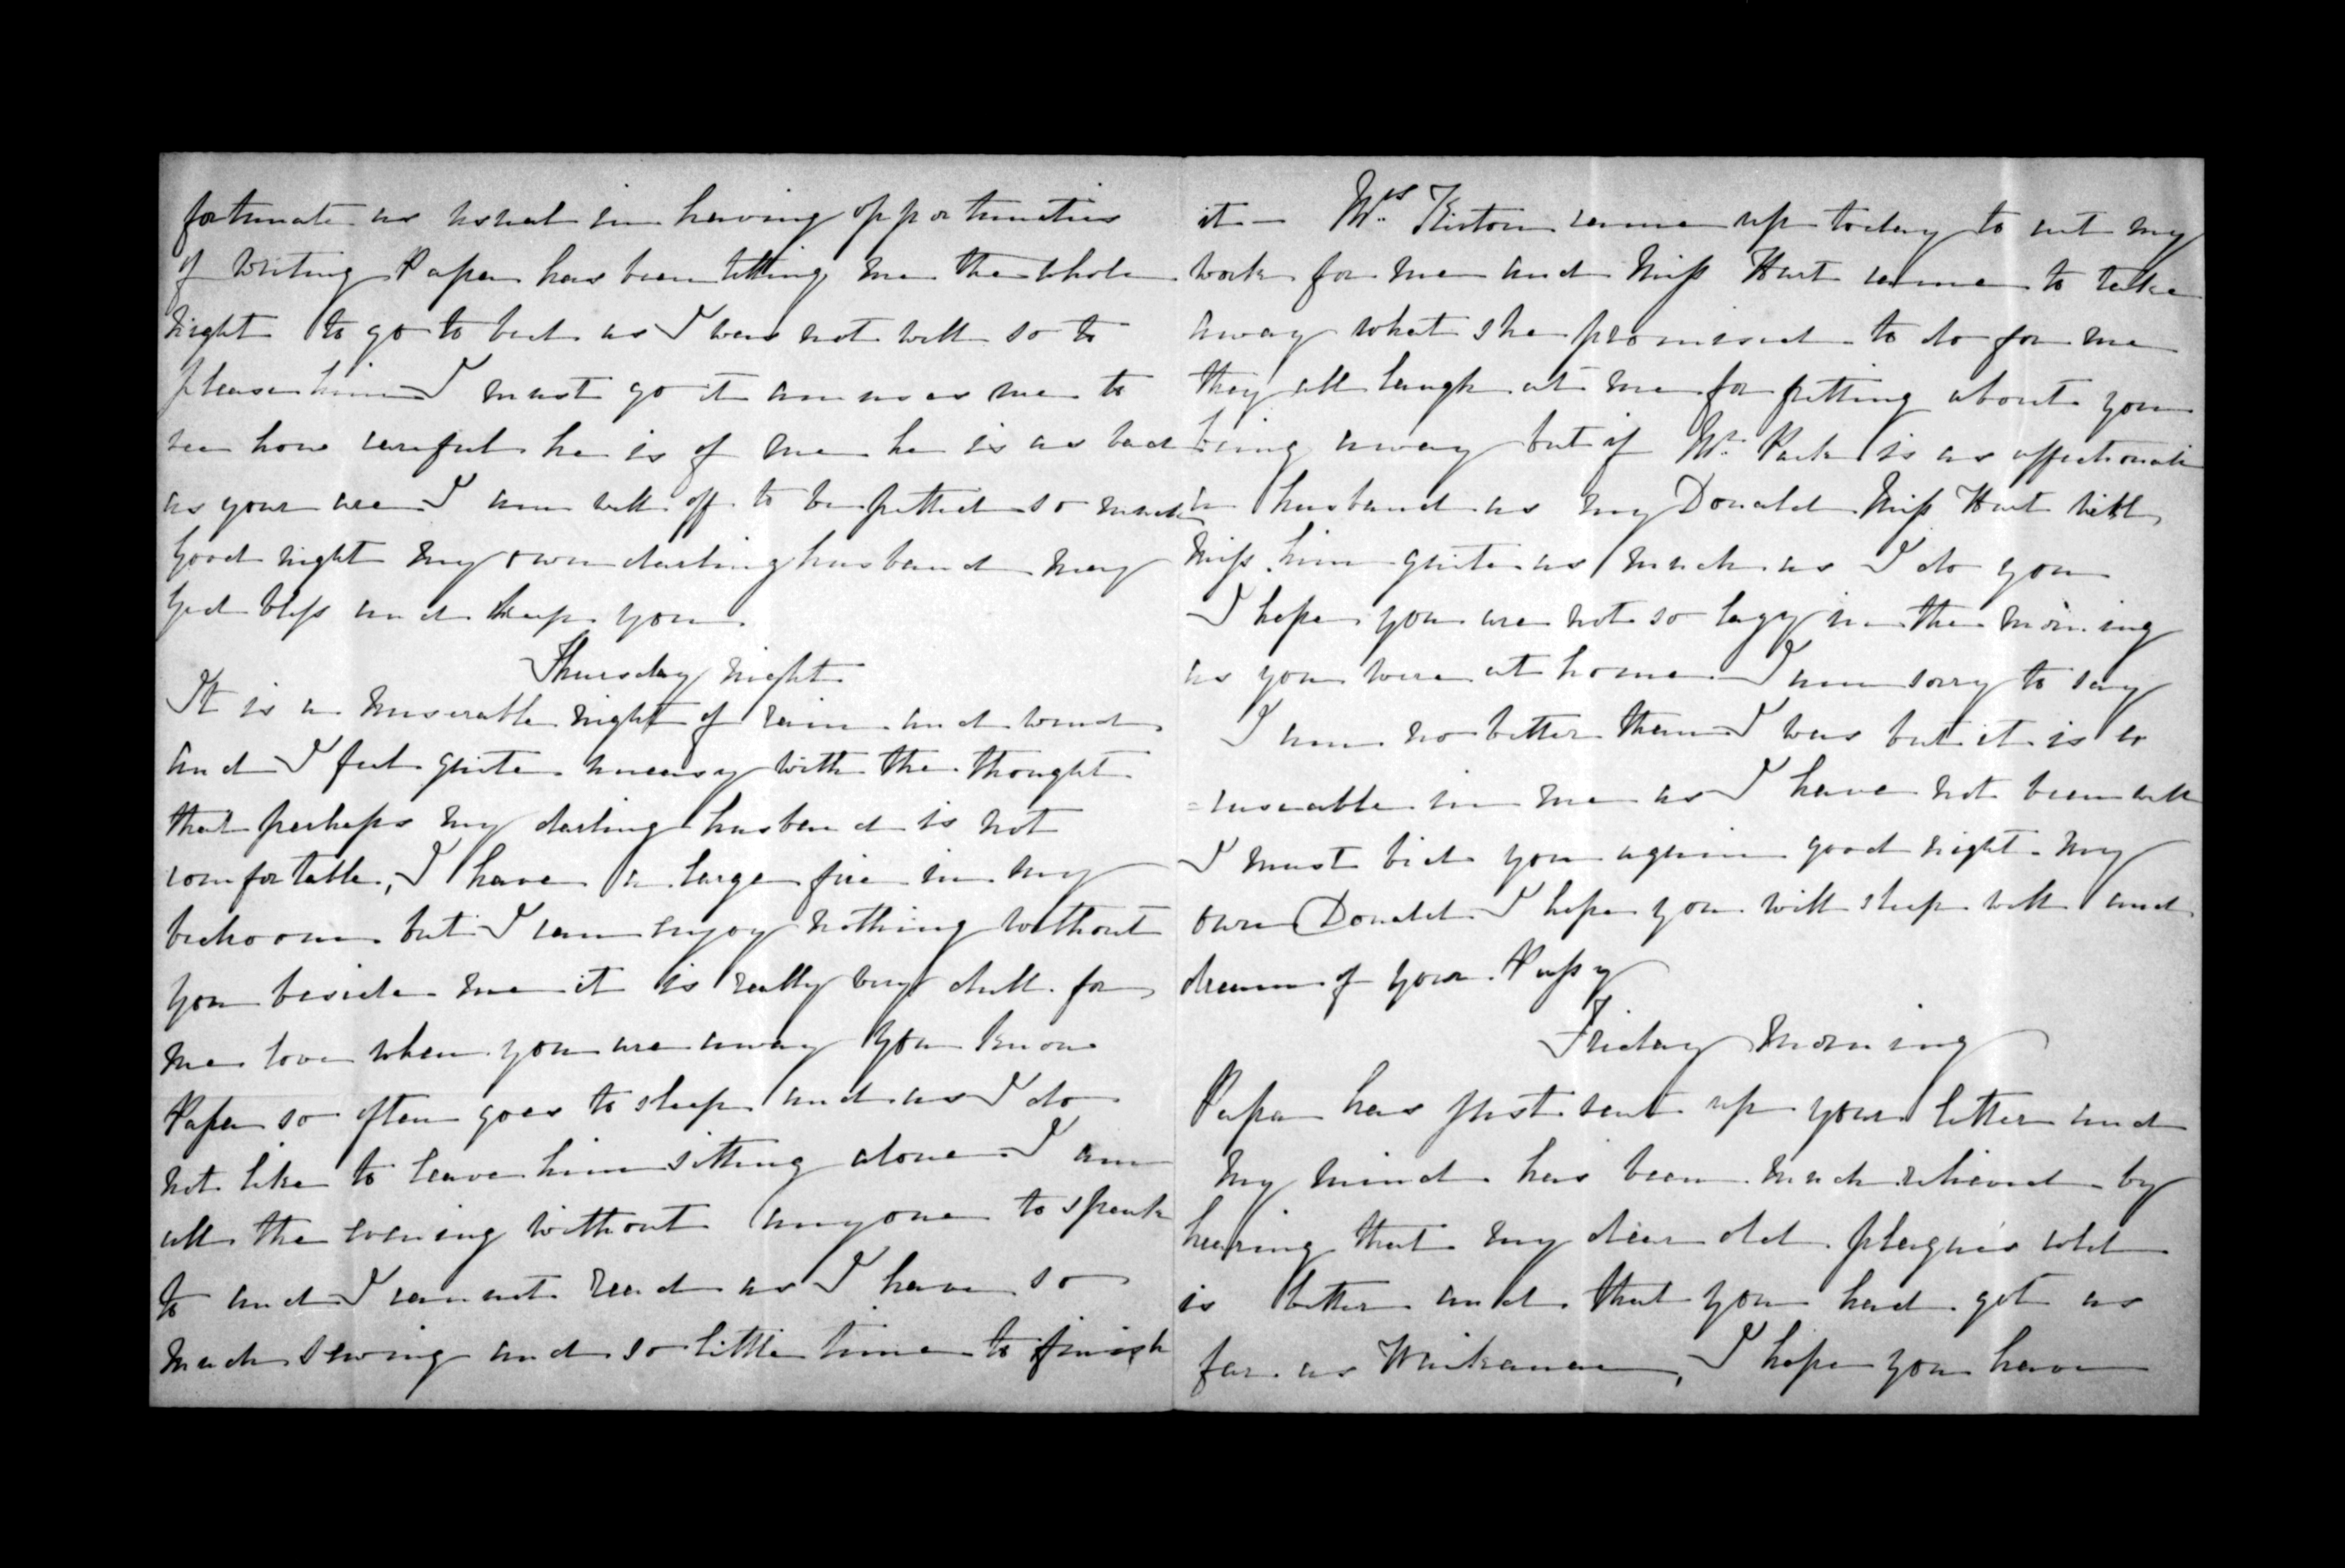 fortunate as usual in having opportunities
of writing Papa has been telling me the whole
night to go to bed as I was not well so to
please him I must go it amuses me to
see how careful he is of me he is as bad
as you are I am well off to be petted so much
good night my own darling husband may
God bless and keep you.
Thursday night
It is a miserable night of rain and wind
and I feel quite uneasy with the thought
that perhaps my darling husband is not
comfortable, I have a large fire in my
bedroom but I can enjoy nothing without
you beside me it is really very dull for
me love when you are away you know
Papa so often goes to sleep and as I do
not like to leave him sitting alone I am
all the evening without anyone to speak
to and I cannot read as I have so
much sewing and so little time to finish
it - Mrs. came up today to cut my
work for me and Miss Hart came to take
away what she promised to do for me
they all laugh at me for fretting about you
being away but if Mr. Park is as affectionate
a husband as my Donald Miss Hart will
miss him quite as much as I do you
I hope you are not so lazy in the morning
as you were at home. I am sorry to say
I am no better than I was but it is ex
=cuseable in me as I have not been well
I must bid you again good night my
own Donald I hope you will sleep well and
dream of your Pussy
Friday morning
Papa has just sent up your letter and
my mind has been much relieved by
hearing that my dear old plague's cold
is better and that you had got as
far as Waikanae, I hope you have